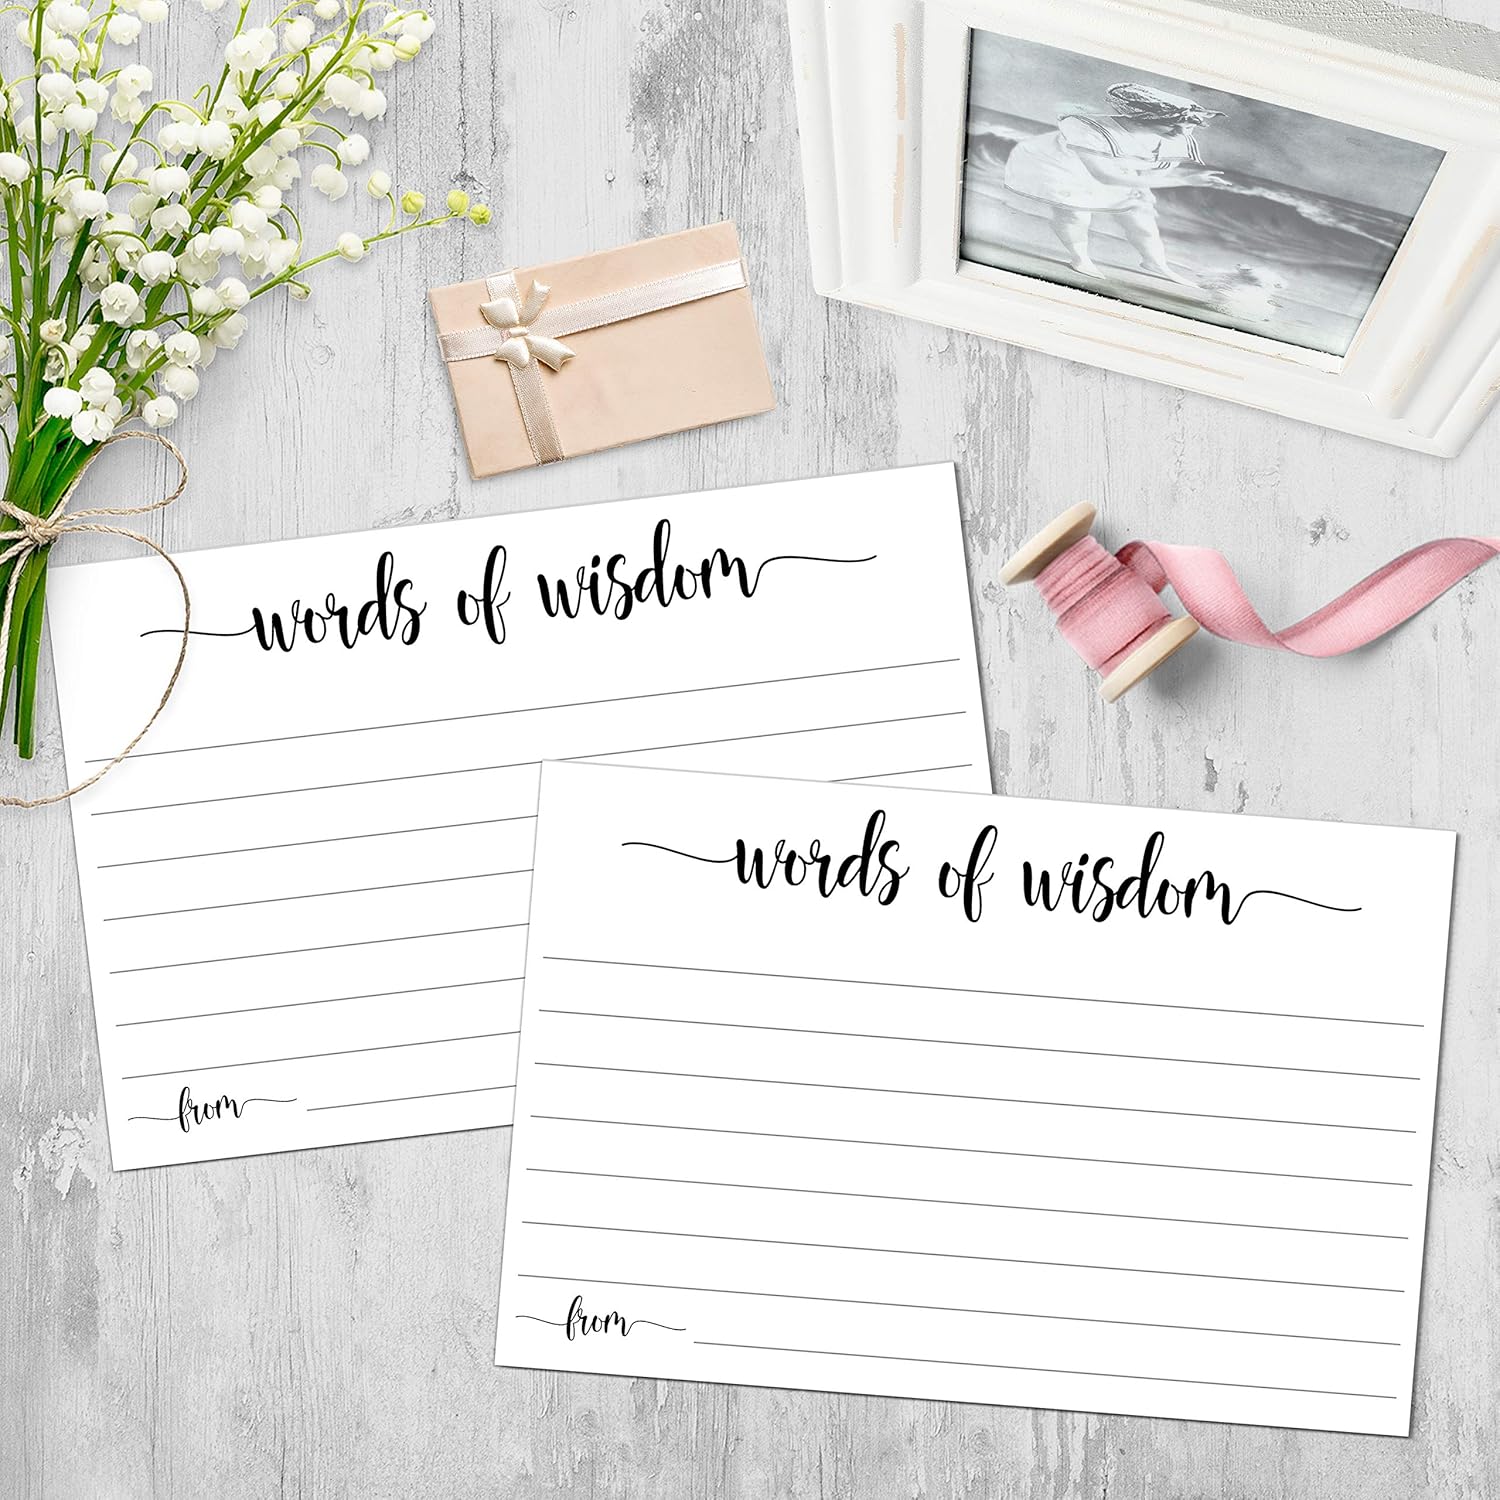 words of wisdom
from
words of wisdom
from